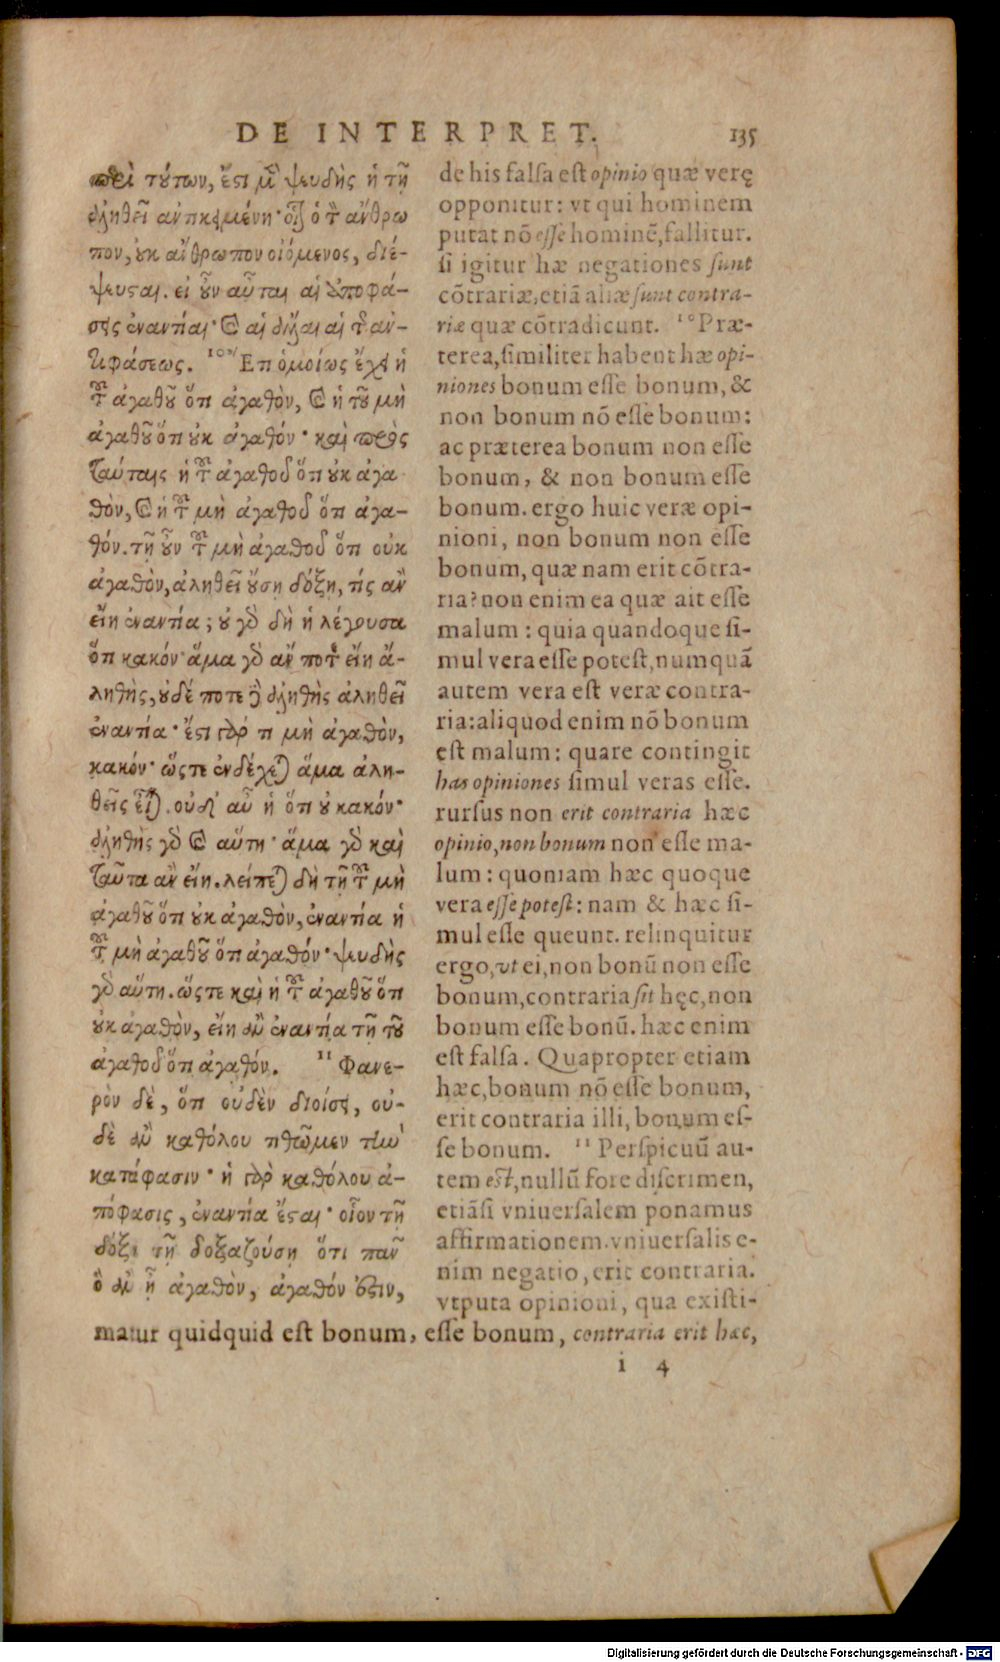 DE INTERPRET. 135
περὶ τούτων, ἔστι μὲν ψευδὴς ἡ τῇ
ἀληθεῖ ἀντικειμένη· οἷον ὁ τὸν ἄνθρω
πον, οὐκ ἄνθρωπον οἰόμενος, διέ-
ψευσται. εἰ οὖν αὗται αἱ ἀποφά-
σεις ἐναντίαι· καὶ αἱ ἄλλαι αἱ τῆς ἀν-
τιφάσεως. 10 Ἔτι ὁμοίως ἔχει ἡ
τοῦ ἀγαθοῦ ὅτι ἀγαθὸν, καὶ ἡ τοῦ μὴ
ἀγαθοῦ ὅτι οὐκ ἀγαθόν· καὶ πρὸς
ταύταις ἡ τοῦ ἀγαθοῦ ὅτι οὐκ ἀγα
θὸν, καὶ ἡ τοῦ μὴ ἀγαθοῦ ὅτι ἀγα-
θόν. τῇ οὖν τοῦ μὴ ἀγαθοῦ ὅτι οὐκ
ἀγαθὸν, ἀληθεῖ οὔσῃ δόξῃ, τίς ἂν
εἴη ἐναντία; οὐ γὰρ δὴ ἡ λέγουσα
ὅτι κακόν· ἅμα γὰρ ἄν ποτε εἴη ἀ-
ληθὴς, οὐδέ ποτε δὲ ἀληθὴς ἀληθεῖ
ἐναντία· ἔστι γάρ τι μὴ ἀγαθὸν,
κακόν· ὥστε ἐνδέχεται ἅμα ἀλη-
θεῖς εἶναι. οὐδ' αὖ ἡ ὅτι οὐ κακόν·
ἀληθὴς γὰρ καὶ αὕτη· ἅμα γὰρ καὶ
ταῦτα ἂν εἴη. λείπεται δὴ τῇ τοῦ μὴ
ἀγαθοῦ ὅτι οὐκ ἀγαθὸν, ἐναντία ἡ
τοῦ μὴ ἀγαθοῦ ὅτι ἀγαθόν· ψευδὴς
γὰρ αὕτη. ὥστε καὶ ἡ τοῦ ἀγαθοῦ ὅτι
οὐκ ἀγαθὸν, εἴη ἂν ἐναντία τῇ τοῦ
ἀγαθοῦ ὅτι ἀγαθόν. 11 Φανε-
ρὸν δὲ, ὅτι οὐδὲν διοίσει, οὐ-
δὲ ἂν καθόλου τιθῶμεν τὴν
κατάφασιν· ἡ γὰρ καθόλου ἀ-
πόφασις, ἐναντία ἔσται· οἷον τῇ
δόξῃ τῇ δοξαζούσῃ ὅτι πᾶν
ὃ ἂν ᾖ ἀγαθὸν, ἀγαθόν ἐστιν,
de his falsa est opinio quæ verę
opponitur: vt qui hominem
putat nõ esse hominẽ, fallitur.
si igitur hæ negationes sunt
cõtrariæ, etiã aliæ sunt contra-
riæ quæ cõtradicunt. 10 Præ-
terea, similiter habent hæ opi-
niones bonum esse bonum, &
non bonum nõ esse bonum:
ac præterea bonum non esse
bonum, & non bonum esse
bonum. ergo huic veræ opi-
nioni, non bonum non esse
bonum, quæ nam erit cõtra-
ria? non enim ea quæ ait esse
malum: quia quandoque si-
mul vera esse potest, numquã
autem vera est veræ contra-
ria: aliquod enim nõ bonum
est malum: quare contingit
has opiniones simul veras esse.
rursus non erit contraria hæc
opinio, non bonum non esse ma-
lum: quoniam hæc quoque
vera esse potest: nam & hæc si-
mul esse queunt. relinquitur
ergo, vt ei, non bonũ non esse
bonum, contraria sit hęc, non
bonum esse bonũ. hæc enim
est falsa. Quapropter etiam
hæc, bonum nõ esse bonum,
erit contraria illi, bonum es-
se bonum. 11 Perspicuũ au-
tem est, nullũ fore discrimen,
etiãsi vniuersalem ponamus
affirmationem. vniuersalis e-
nim negatio, erit contraria.
vtputa opinioni, qua existi-
matur quidquid est bonum, esse bonum, contraria erit hæc,
i 4
Digitalisierung gefördert durch die Deutsche Forschungsgemeinschaft - DFG